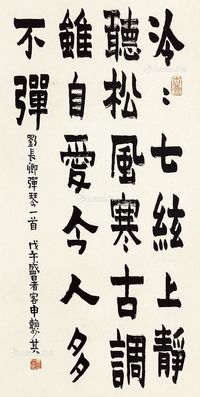 泠〻七絃上靜
聽松風寒古調
雖自愛今人多
不彈
劉長卿彈琴一首 戊午盛暑客申賴少其